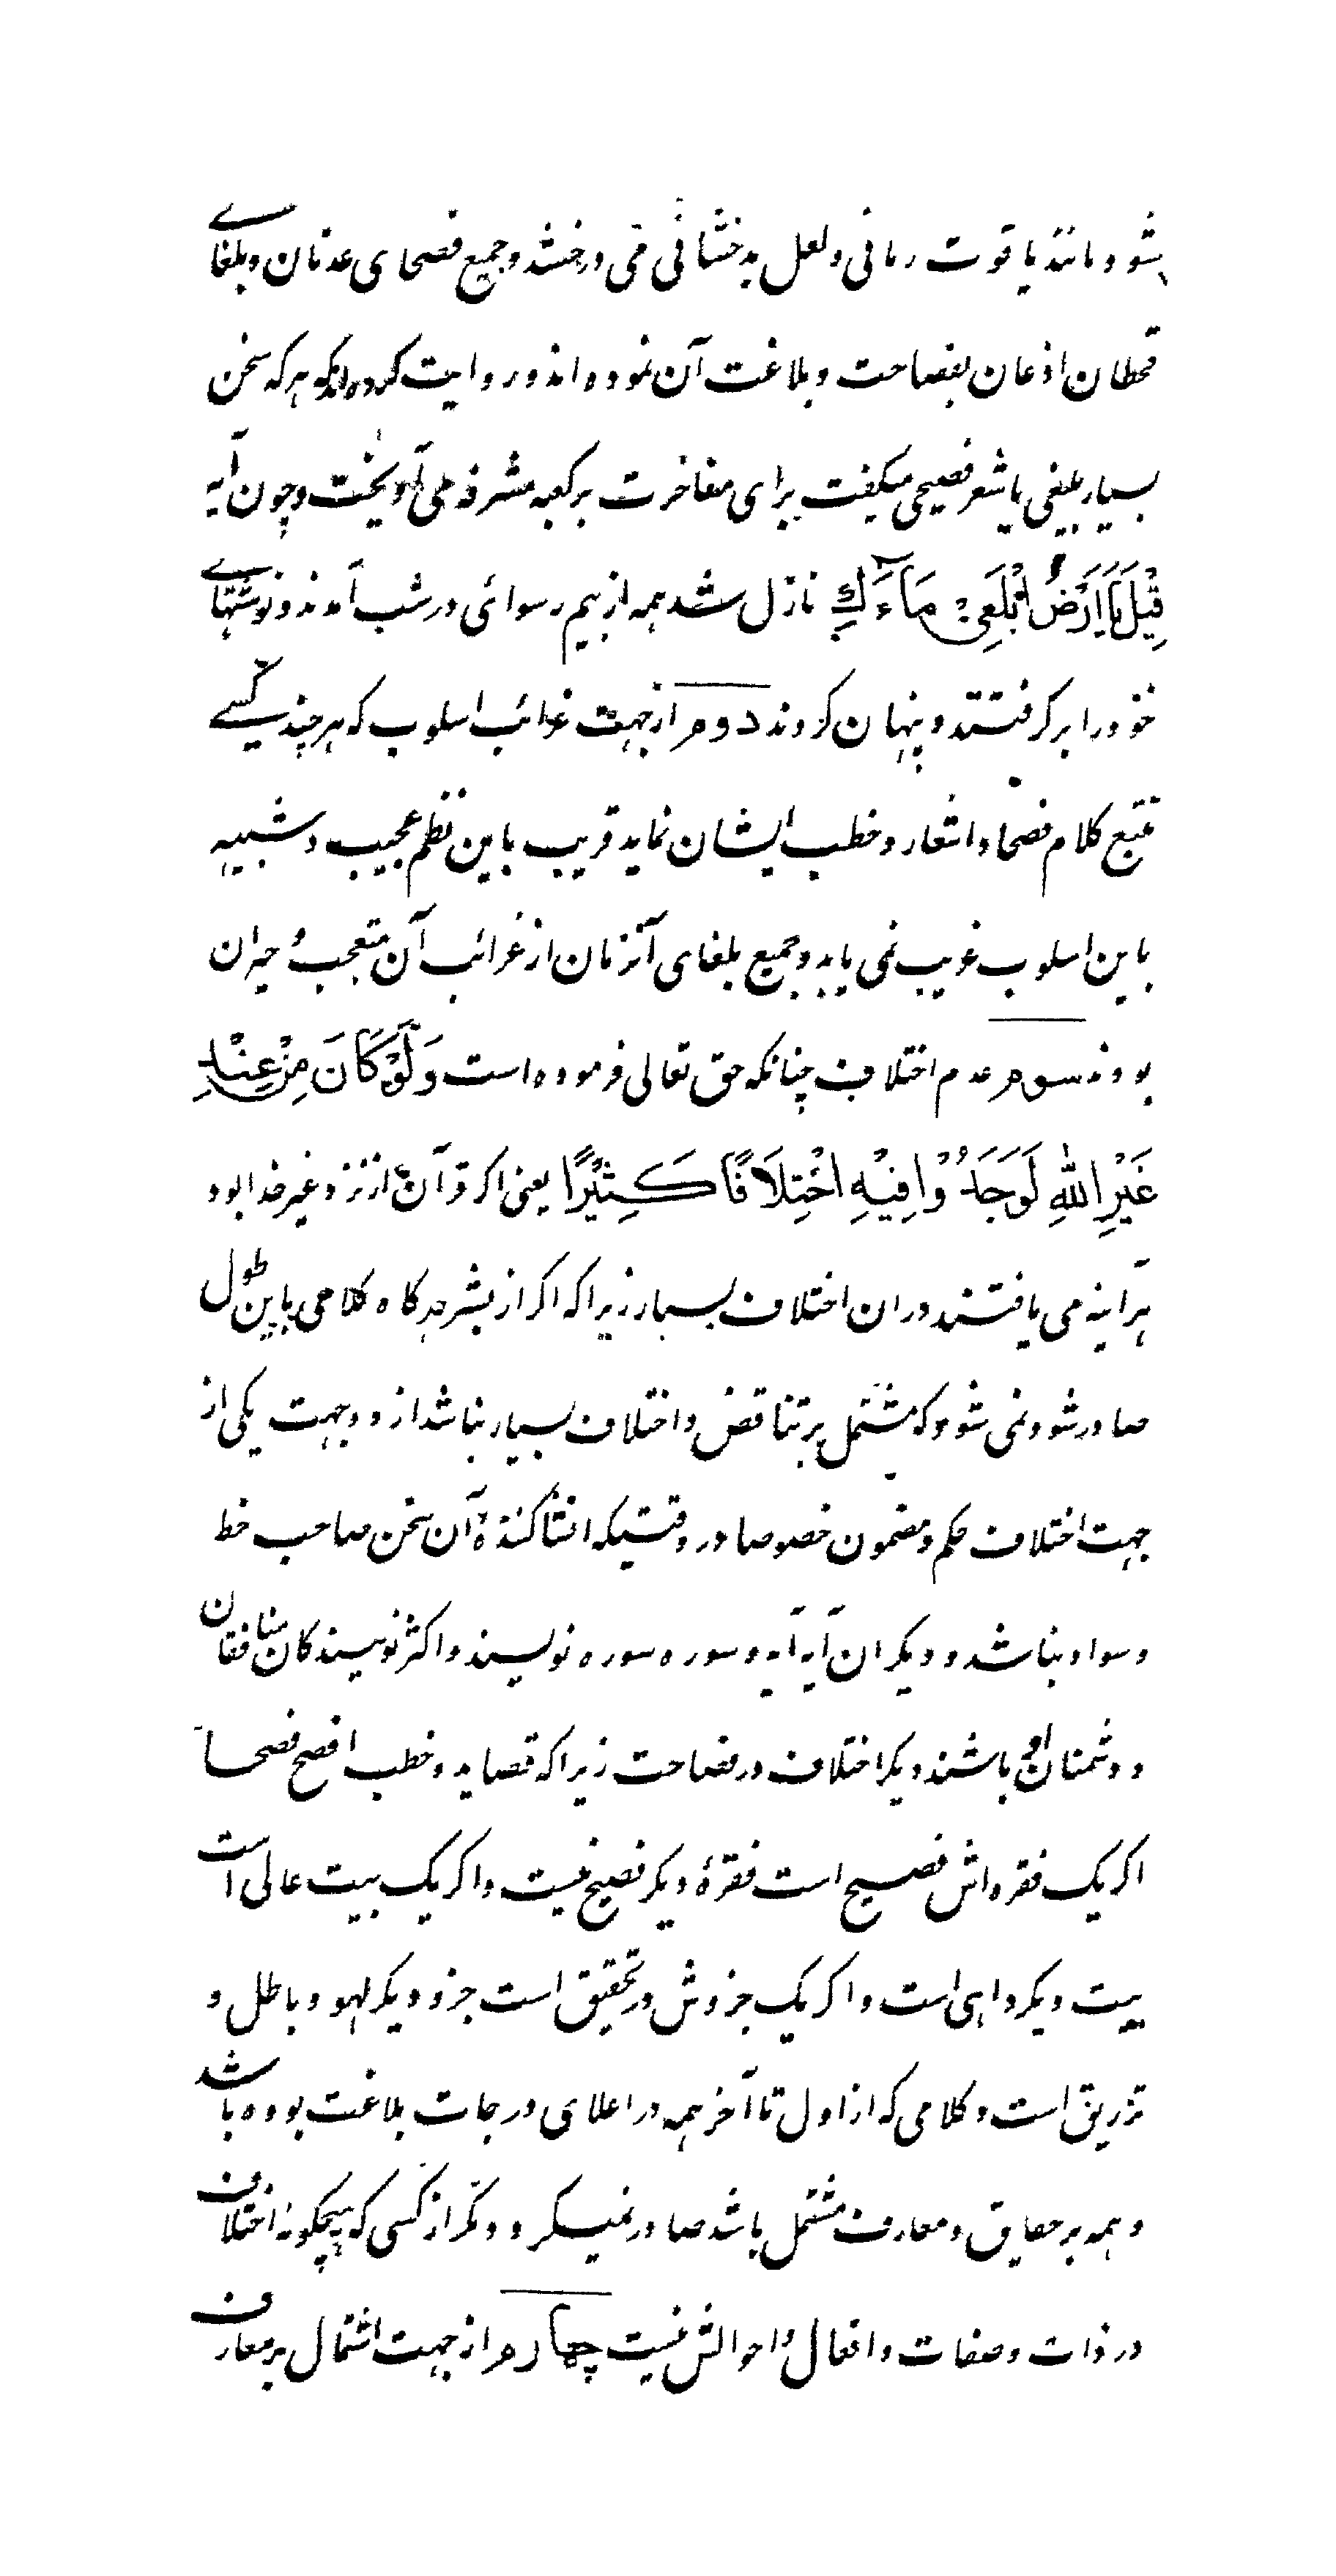 بشود و مانند یاقوت رمانی و لعل بدخشانی می درخشد و جمیع فصحای عدنان و بلغای
قحطان اذعان بفصاحت و بلاغت آن نموده اند و روایت کرده اند که هرکه سخن
بسیار بلیغی یا شعر فصیحی میگفت برای مفاخرت بر کعبه مشرفه می آویخت و چون آیه
قِیْلَ یَا اَرْضُ ابْلَعِیْ مَآءَكِ نازل شد همه از بیم رسوائی در شب آمدند و نوشتهای
خود را بر گرفتند و پنهان کردند دوم از جهت غرائب اسلوب که هر چند کسے
تتبع کلام فصحا و اشعار و خطب ایشان نماید قریب باین نظم عجیب و شبیه
باین اسلوب غریب نمی یابد و جمیع بلغای آنزمان از غرائب آن متعجب و حیران
بودند سوم عدم اختلاف چنانکه حق تعالی فرموده است وَلَوْ كَانَ مِنْ عِنْدِ
غَیْرِ اللّٰهِ لَوَجَدُوْا فِیْهِ اخْتِلَافًا كَثِیْرًا یعنی اکر قرآن از نزد غیر خدا بود
هرآینه می یافتند دران اختلاف بسیار زیراکه اکر از بشر هرکاه کلامی باین طول
صادر شود نمی شود که مشتمل بر تناقض و اختلاف بسیار نباشد از دو جهت یکی از
جهت اختلاف حکم و مضمون خصوصا در وقتیکه انشاکنندهٔ آن سخن صاحب خط
و سواد نباشد و دیکران آیه آیه و سوره سوره نویسند و اکثر نویسندکان منافقان
و دشمنان او باشند دیکر اختلاف در فصاحت زیراکه قصاید و خطب افصح فصحا
اکر یک فقره اش فصیح است فقرهٔ دیکر فصیح نیست و اکر یک بیت عالی است
بیت دیکر واهی است و اکر یک جزوش در تحقیق است جزو دیکر لهو و باطل و
تزریق است و کلامی که از اول تا آخر همه در اعلای درجات بلاغت بوده باشد
و همه بر حقایق و معارف مشتمل باشد صادر نمیکردد مکر از کسی که هیچکونه اختلاف
در ذات و صفات و افعال و احوالش نیست چهارم از جهت اشتمال بر معارف